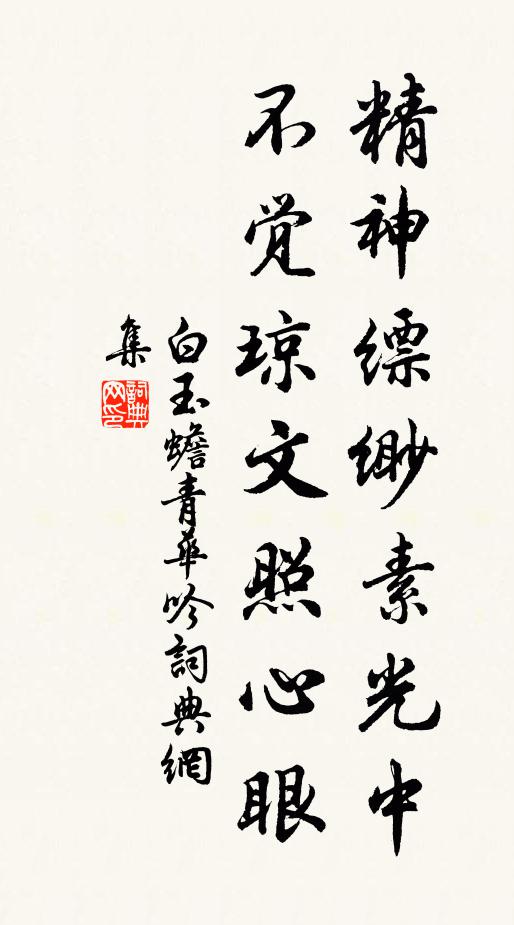 精神缥缈素光中
不觉琼文照心眼
白玉蟾青華吟詞典網
集
詞典
网印